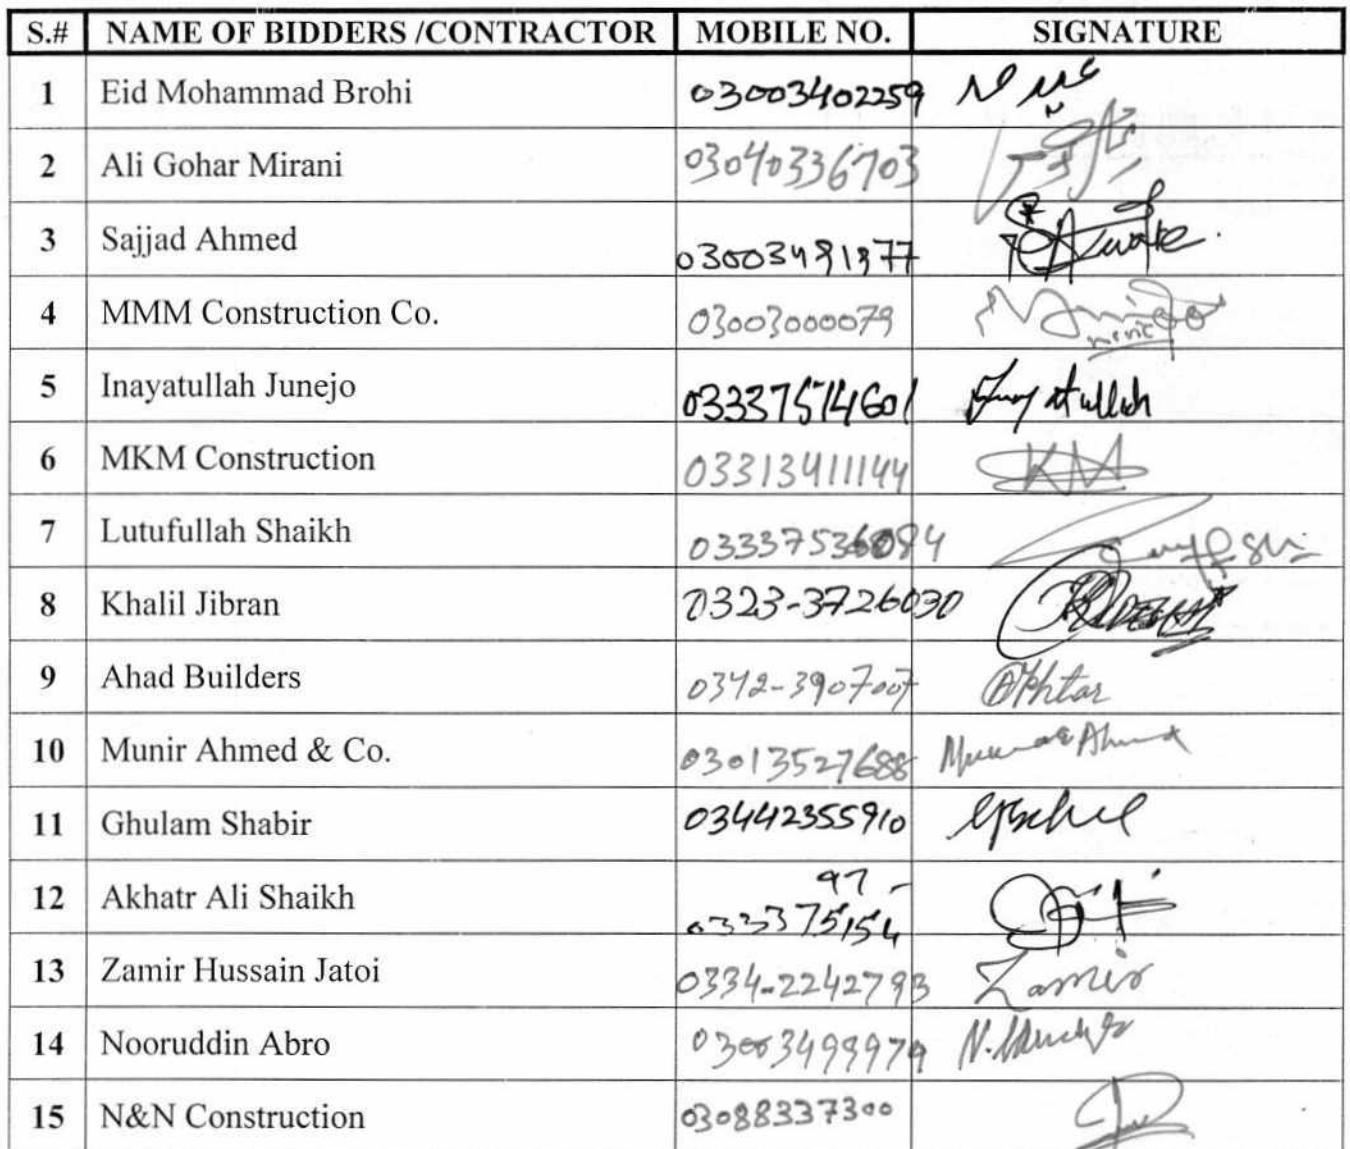 S.# NAME OF BIDDERS /CONTRACTOR MOBILE NO. SIGNATURE
1 Eid Mohammad Brohi 03003402259
2 Ali Gohar Mirani 03040336703
3 Sajjad Ahmed
4 MMM Construction Co. 03003000079
5 Inayatullah Junejo 03337514601 Inayatullah
6 MKM Construction 03313411144 KM
7 Lutufullah Shaikh
8 Khalil Jibran 0323-3726030
9 Ahad Builders 0342-3907007 Akhtar
10 Munir Ahmed & Co. 03013527688 Ahmed
11 Ghulam Shabir 03442355910
97
12 Akhatr Ali Shaikh 0333375154
13 Zamir Hussain Jatoi 0334-2242793 Zamir
14 Nooruddin Abro 03003499979
15 N&N Construction 03088337300